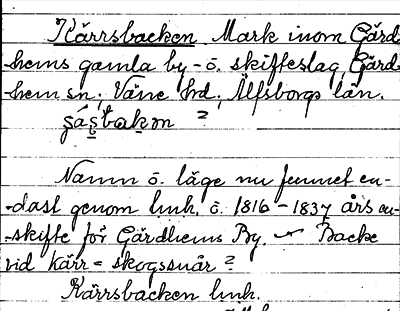 Kärrsbacken Mark inom Gärd-
hems gamla by- o. skifteslag, Gärd-
hem sn. Väne hrd, Älfsborgs län.
?
Namn o. läge nu funnet en-
dast genom lmh. o. 1816-1837 års en-
skifte för Gärdhems By. Backe
vid kärr = skogssnår?
Kärrsbacken lmh.